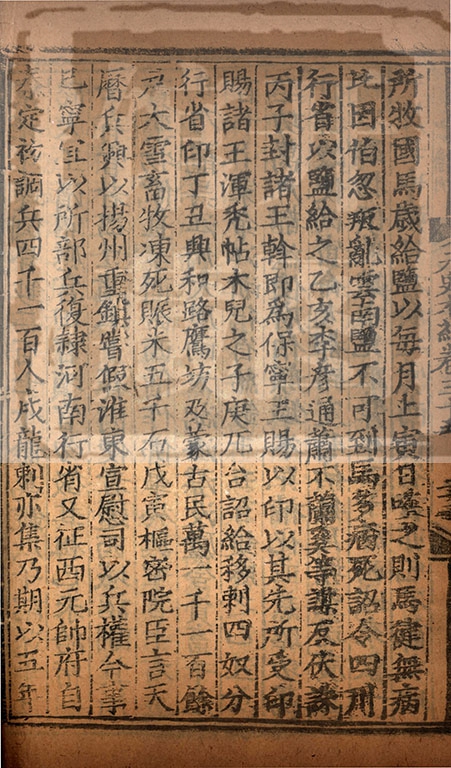 所牧國馬歲給鹽以每月上寅日啖之則馬健無病
比因伯忽叛亂雲南鹽不可到馬多病死詔令四川
行省以鹽給之乙亥李彥通蕭不蘭奚等謀反伏誅
丙子封諸王斡即爲保寧王賜以印以其先所受印
賜諸王渾禿帖木兒之子庚兀台詔給移剌四奴分
行省印丁丑興和路鷹坊及蒙古民萬一千一百餘
戶大雪畜牧凍死賑米五千石戊寅樞密院臣言天
曆兵興以揚州重鎮嘗假淮東宣慰司以兵權今事
已寧宜以所部兵復隸河南行省又征西元帥府自
泰定初調兵四千一百人戍龍剌亦集乃期以五年